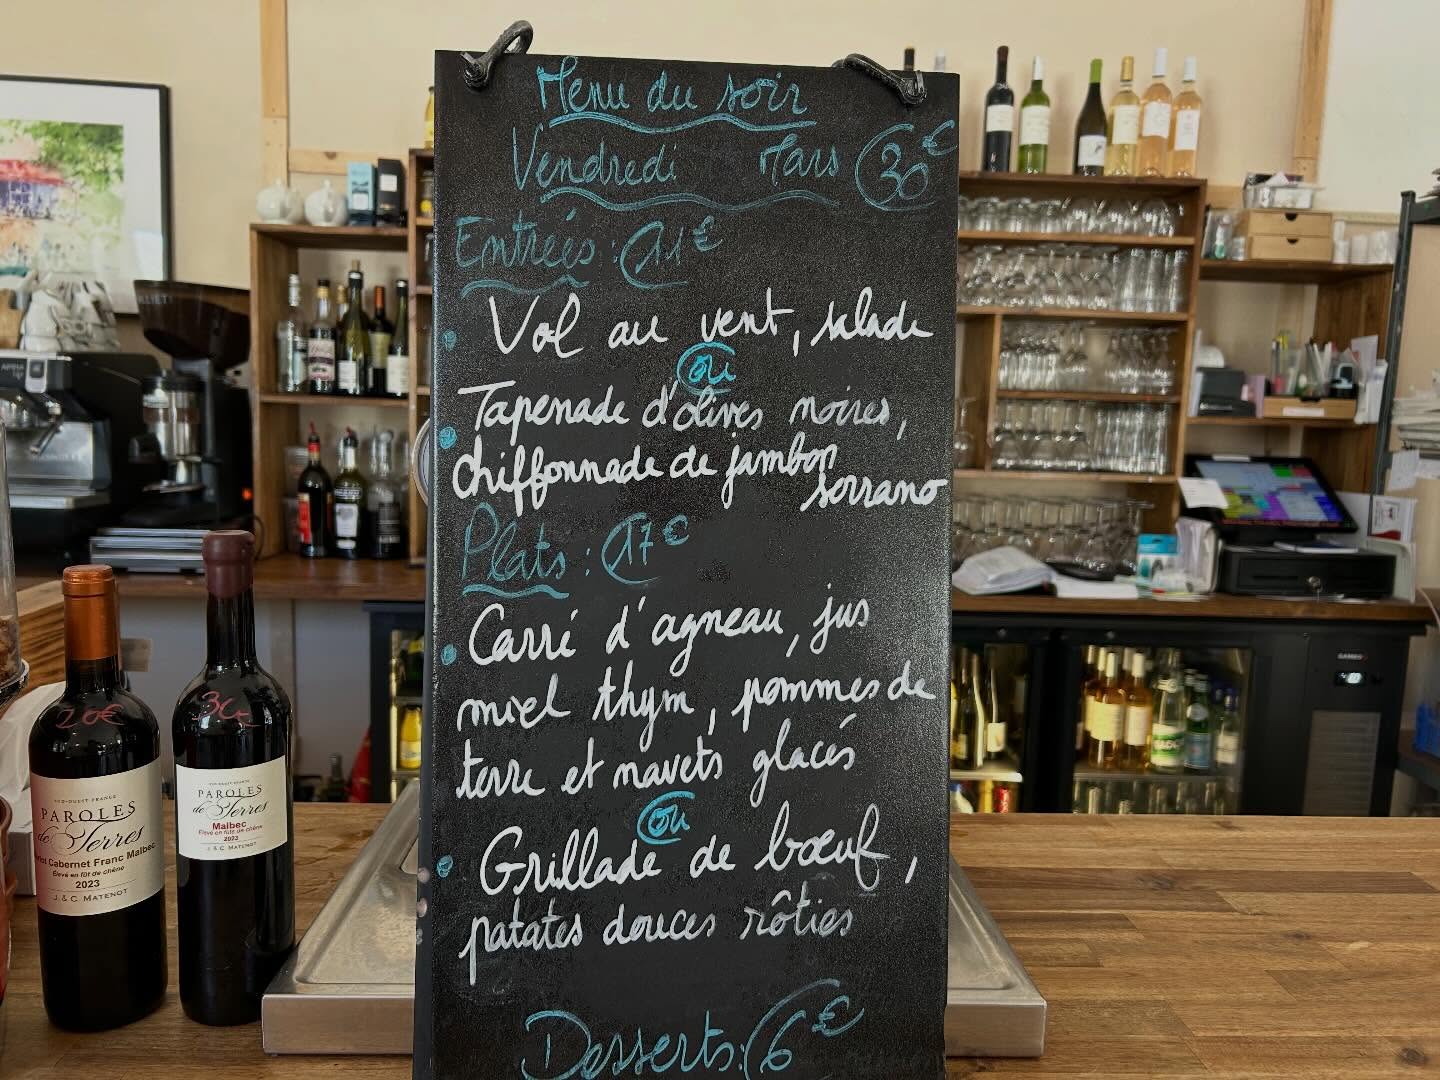 Menu du soir
Vendredi Mars 30€
Entrées : 11€
Vol au vent, salade
ou
Tapenade d'olives noires,
chiffonnade de jambon
serrano
Plats : 17€
Carré d'agneau, jus
miel thym, pommes de
terre et navets glacés
ou
Grillade de bœuf,
patates douces rôties
Desserts : 6€
20€
SUD-OUEST FRANCE
PAROLES
de Terres
Cabernet Franc Malbec
Élevé en fût de chêne
2023
J. & C. MATENOT
30€
SUD-OUEST FRANCE
PAROLES
de Terres
Malbec
Élevé en fût de chêne
2023
J. & C. MATENOT